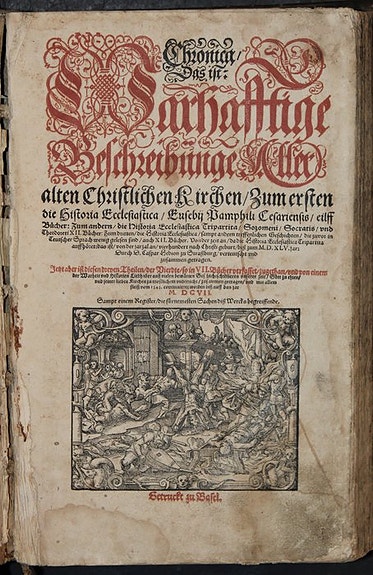 Chronica/
Das ist:
Warhafftige
Beschreibunge Aller
alten Christlichen Kirchen / Zum ersten
die Historia Ecclesiastica / Eusebij Pamphili Cesariensis / eilff
Bücher: Zum andern / die Historia Ecclesiastica Tripartita / Sozomeni / Socratis / vnd
Theodoreti XII. Bücher: Zum dritten / die Historia Ecclesiastica / sampt andern treffenlichen Geschichten / die zuvor in
Teutscher Sprach wenig gelesen sind / auch XII. Bücher. Von der zeit an / da die Historia Ecclesiastica Tripartita
auffhöret / das ist / von der jar an / vierhundert nach Christi geburt / biß zum M.D.XLV. jar:
Durch D. Caspar Hedion zu Straßburg / verteutscht vnd
zusammen getragen.
Jetz aber ist diesen dreyen Theilen / der Vierdte / so in VII. Bücher verfasset / zugethan / vnd von einem
der Warheit vnd
M. DCVII.
Sampt einem Register / die fürnemesten Sachen diß Wercks begreiffende.
Getruckt zu Basel.